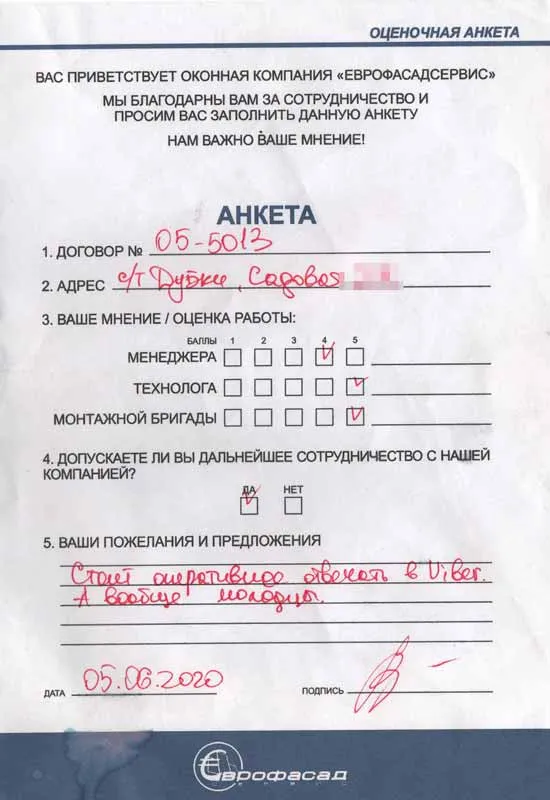 ОЦЕНОЧНАЯ АНКЕТА
ВАС ПРИВЕТСТВУЕТ ОКОННАЯ КОМПАНИЯ «ЕВРОФАСАДСЕРВИС»
МЫ БЛАГОДАРНЫ ВАМ ЗА СОТРУДНИЧЕСТВО И
ПРОСИМ ВАС ЗАПОЛНИТЬ ДАННУЮ АНКЕТУ
НАМ ВАЖНО ВАШЕ МНЕНИЕ!
АНКЕТА
1. ДОГОВОР № 05-5013
2. АДРЕС с/т Дубки, Садовая
3. ВАШЕ МНЕНИЕ / ОЦЕНКА РАБОТЫ:
БАЛЛЫ 1 2 3 4 5
МЕНЕДЖЕРА
ТЕХНОЛОГА
МОНТАЖНОЙ БРИГАДЫ
4. ДОПУСКАЕТЕ ЛИ ВЫ ДАЛЬНЕЙШЕЕ СОТРУДНИЧЕСТВО С НАШЕЙ
КОМПАНИЕЙ?
ДА НЕТ
5. ВАШИ ПОЖЕЛАНИЯ И ПРЕДЛОЖЕНИЯ
Стоит оперативнее отвечать в Viber.
А вообще молодцы.
ДАТА 05.06.2020 ПОДПИСЬ
Еврофасад
СЕРВИС